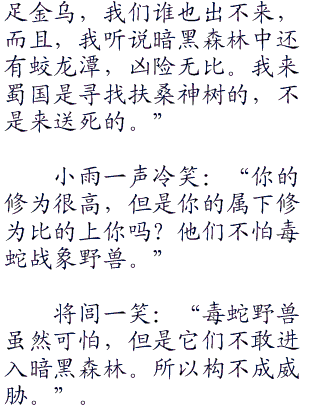 足金乌，我们谁也出不来，
而且，我听说暗黑森林中还
有蛟龙潭，凶险无比。我来
蜀国是寻找扶桑神树的，不
是来送死的。”
小雨一声冷笑：“你的
修为很高，但是你的属下修
为比的上你吗？他们不怕毒
蛇战象野兽。”
将闾一笑：“毒蛇野兽
虽然可怕，但是它们不敢进
入暗黑森林。所以构不成威
胁。”。